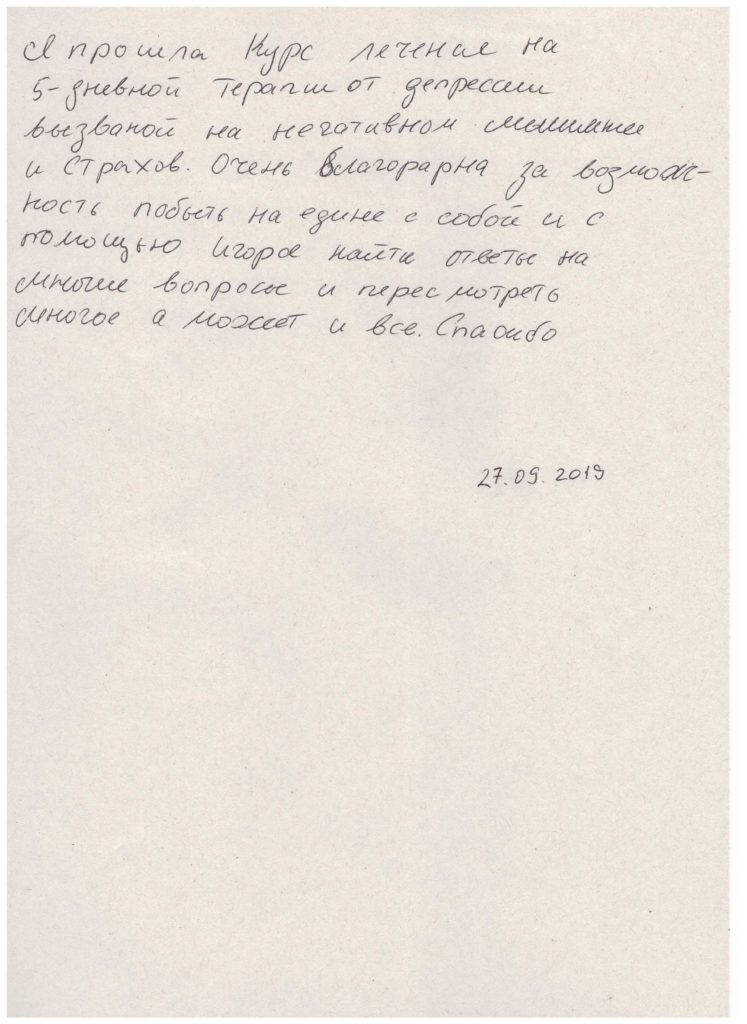 Я прошла курс лечения на
5-дневной терапии от депрессии
вызваной на негативном мышлении
и страхов. Очень благорарна за возмож-
ность побыть на едине с собой и с
помощью Игоря найти ответы на
многие вопросы и пересмотреть
многое а может и все. Спасибо
27.09.2019